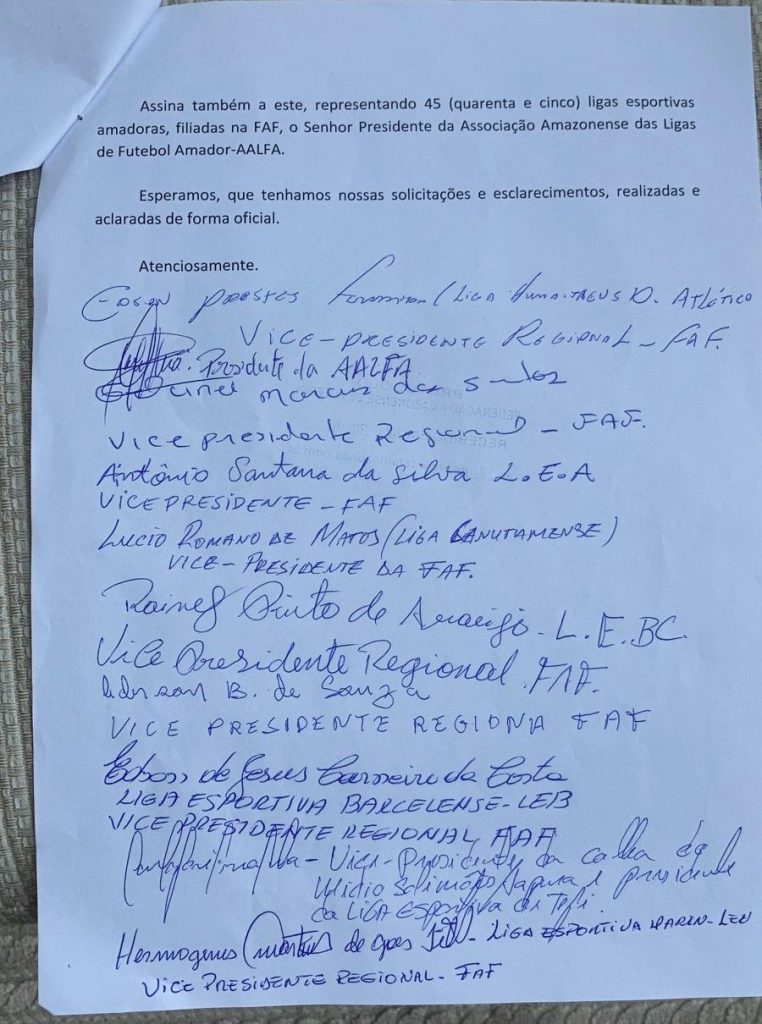 Assina também a este, representando 45 (quarenta e cinco) ligas esportivas
amadoras, filiadas na FAF, o Senhor Presidente da Associação Amazonense das Ligas
de Futebol Amador-AALFA.
Esperamos, que tenhamos nossas solicitações e esclarecimentos, realizadas e
aclaradas de forma oficial.
Atenciosamente.
PRESTES (LIGA D. ATLÉTICO
VICE-PRESIDENTE REGIONAL - FAF.
Presidente da AALFA
Marcus dos Santos
Vice presidente Regional - FAF.
Antônio Santana da Silva L.E.A
VICE PRESIDENTE - FAF
LUCIO ROMANO DE MATOS (LIGA CANUTAMENSE)
VICE-PRESIDENTE DA FAF.
Rainey Pinto de Araujo - L.E.BC.
Vice Presidente Regional FAF.
B. de Souza
VICE PRESIDENTE REGIONA FAF
Edson de Jesus Carneiro da Costa
LIGA ESPORTIVA BARCELENSE-LEB
VICE PRESIDENTE REGIONAL FAF
- Vice-Presidente da calha do
Médio Solimões e presidente
da LIGA Esportiva de Tefé.
Hermogenes de goes - LIGA ESPORTIVA
VICE PRESIDENTE REGIONAL - FAF